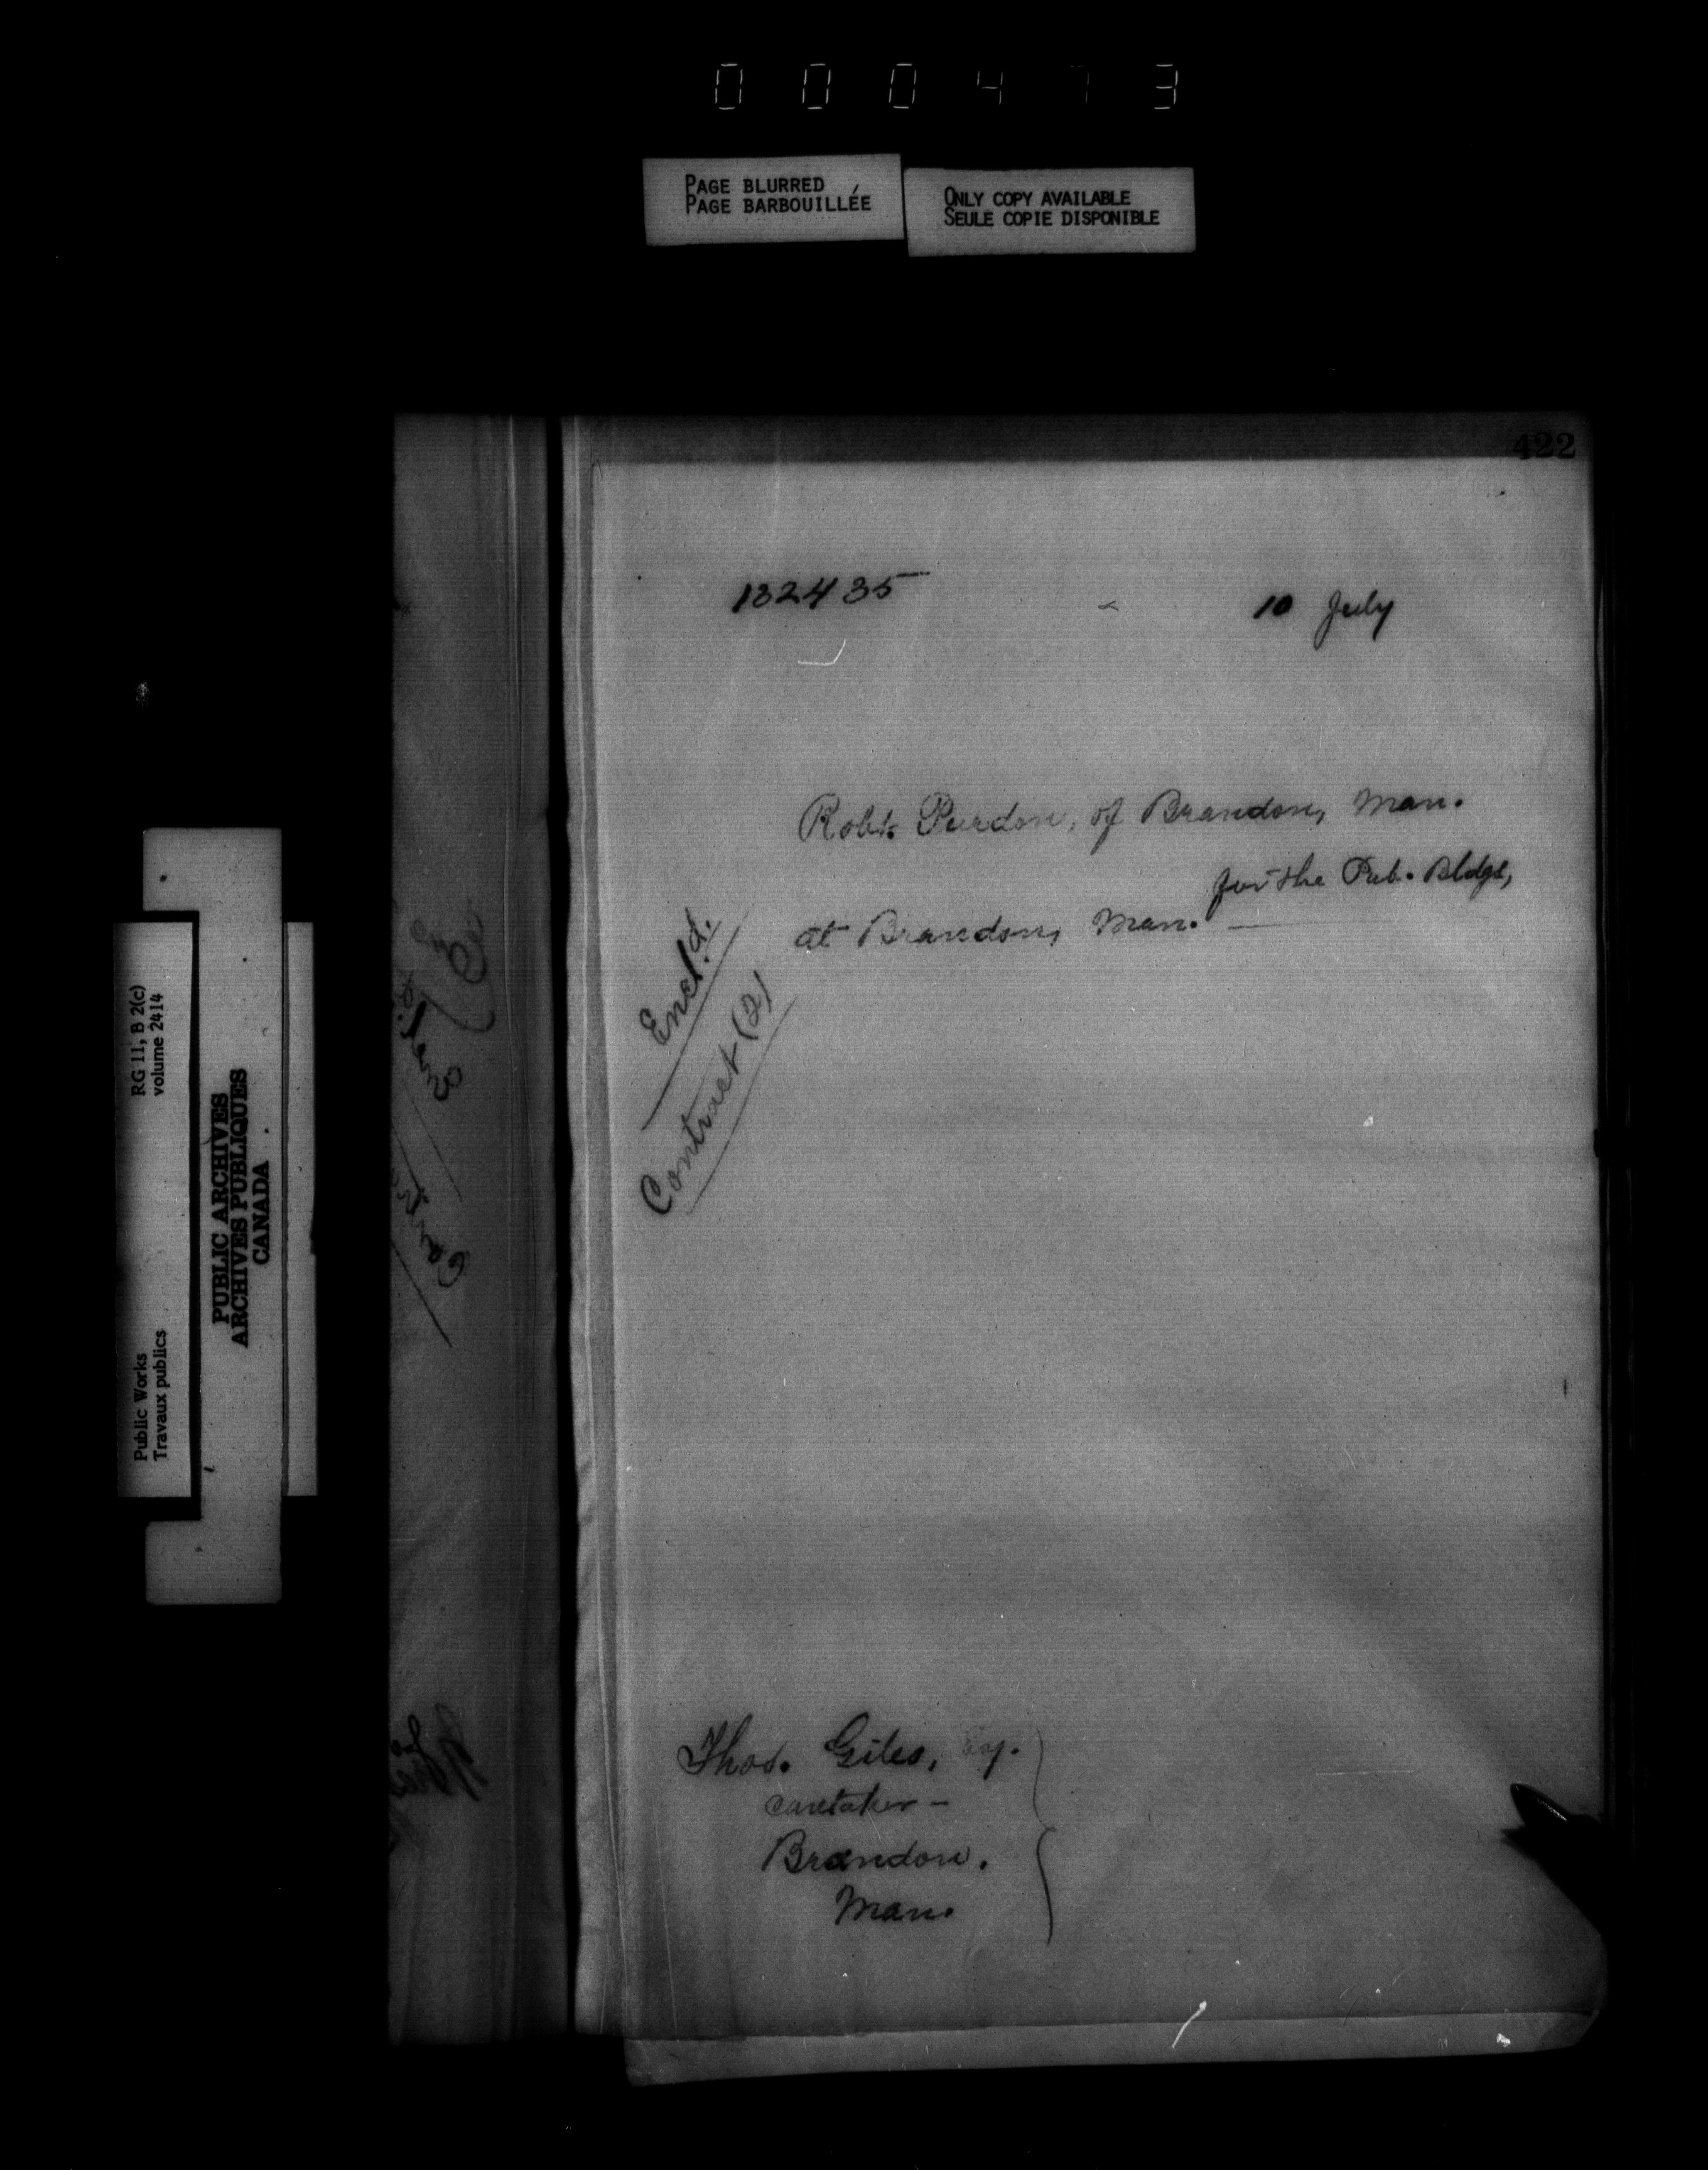 000473
PAGE BLURRED
PAGE BARBOUILLÉE
ONLY COPY AVAILABLE
SEULE COPIE DISPONIBLE
422
132435
10 July
Robt. Purdon, of Brandon, Man.
for the Pub. Bldgs,
at Brandon, Man.
Encl'd.
Contract (2)
Thos. Giles, Esq.
caretaker -
Brandon.
Man.
RG 11, B 2(c)
volume 2414
Public Works
Travaux publics
PUBLIC ARCHIVES
ARCHIVES PUBLIQUES
CANADA